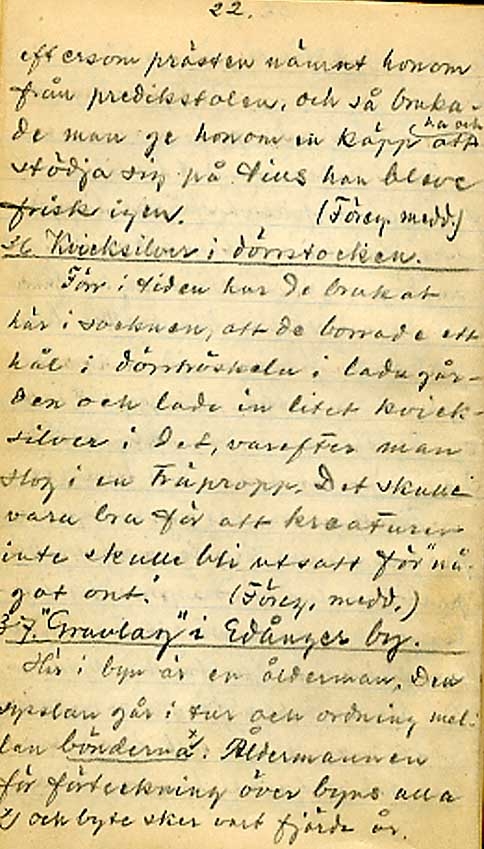 22.
eftersom prästen nämnt honom
från predikstolen, och så bruka-
de man ge honom en käpp ha och att
stödja sig på tills han bleve
frisk igen. (Föreg. medd.)
36. Kvicksilver i dörrstocken.
Förr i tiden har de brukat
här i socknen, att de borrade ett
hål i dörrtröskeln i ladugår-
den och lade in litet kvick-
silver i det, varefter man
slog i en träpropp. Det skulle
vara bra för att kreaturen
inte skulle bli utsatt för "nå-
got ont." (Föreg. medd.)
37. "Gravlag" i Edånger by.
Här i byn är en ålderman. Den
sysslan går i tur och ordning mel-
lan bönderna x). Åldermannen
för förteckning över byns alla
x) och byte sker vart fjärde år.